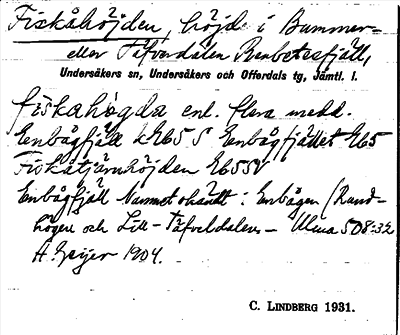 Fiskåhöjden, höjd i Bummer-
eller Täfverdalen Renbetesfjäll,
Undersåkers sn, Undersåkers och Offerdals tg, Jämtl. l.
fiskahögda enl. flera medd.
Enbågfjäll Enbågfjället
Fiskåtjärnhöjden
Enbågfjäll Namnet okänt: Enbågen (Rund-
högen och Lill-Täfveldalen - Ulma 508:32
A. Geijer 1904.
C. LINDBERG 1931.